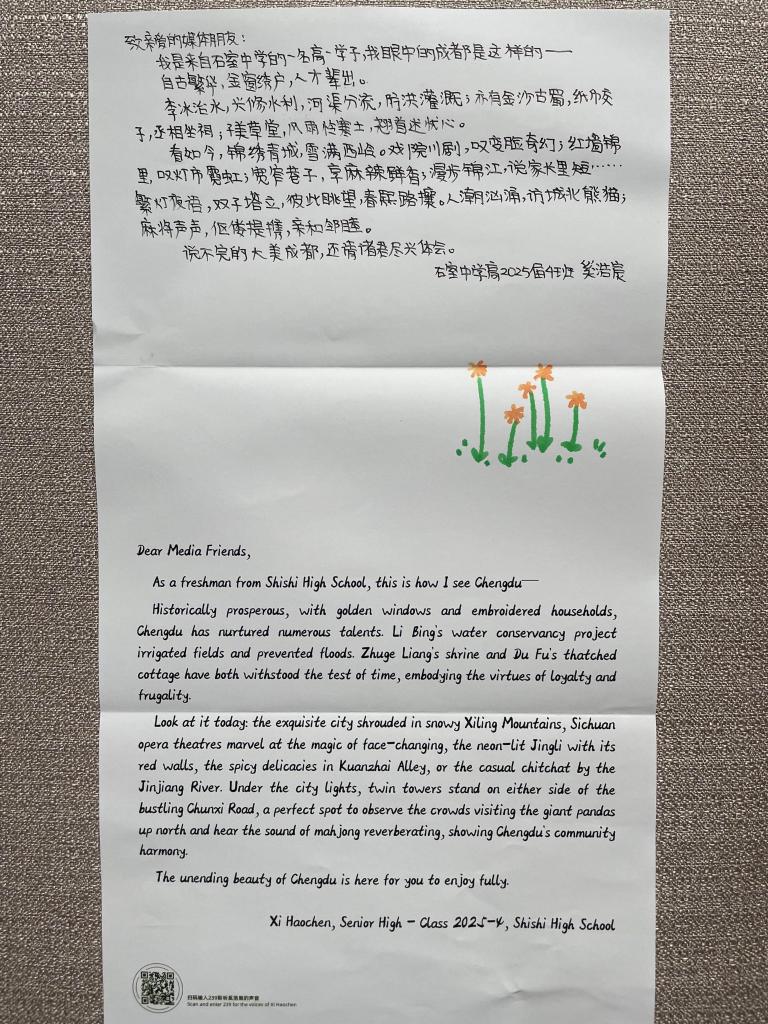 致亲爱的媒体朋友：
我是来自石室中学的一名高一学子，我眼中的成都是这样的——
自古繁华，金窗绣户，人才辈出。
李冰治水，兴修水利，河渠分流，防洪灌溉；亦有金沙古蜀，纸币交
子，丞相坐祠；璞草堂，风雨怜寒士，翘首述忧心。
看如今，锦绣青城，雪满西岭。戏院川剧，叹变脸奇幻；红墙锦
里，叹灯市霓虹；宽窄巷子，享麻辣鲜香；漫步锦江，说家长里短……
繁灯夜语，双子塔立，彼此眺望，春熙路攘。人潮汹涌，访城北熊猫；
麻将声声，俱携提携，亲和邻睦。
说不完的大美成都，还请诸君尽兴体会。
石室中学高2025届4班 奚浩宸
Dear Media Friends,
As a freshman from Shishi High School, this is how I see Chengdu——
Historically prosperous, with golden windows and embroidered households,
Chengdu has nurtured numerous talents. Li Bing's water conservancy project
irrigated fields and prevented floods. Zhuge Liang's shrine and Du Fu's thatched
cottage have both withstood the test of time, embodying the virtues of loyalty and
frugality.
Look at it today: the exquisite city shrouded in snowy Xiling Mountains, Sichuan
opera theatres marvel at the magic of face-changing, the neon-lit Jingli with its
red walls, the spicy delicacies in Kuanzhai Alley, or the casual chitchat by the
Jinjiang River. Under the city lights, twin towers stand on either side of the
bustling Chunxi Road, a perfect spot to observe the crowds visiting the giant pandas
up north and hear the sound of mahjong reverberating, showing Chengdu's community
harmony.
The unending beauty of Chengdu is here for you to enjoy fully.
Xi Haochen, Senior High - Class 2025-4, Shishi High School
扫码输入239聆听奚浩宸的声音
Scan and enter 239 for the voices of Xi Haochen